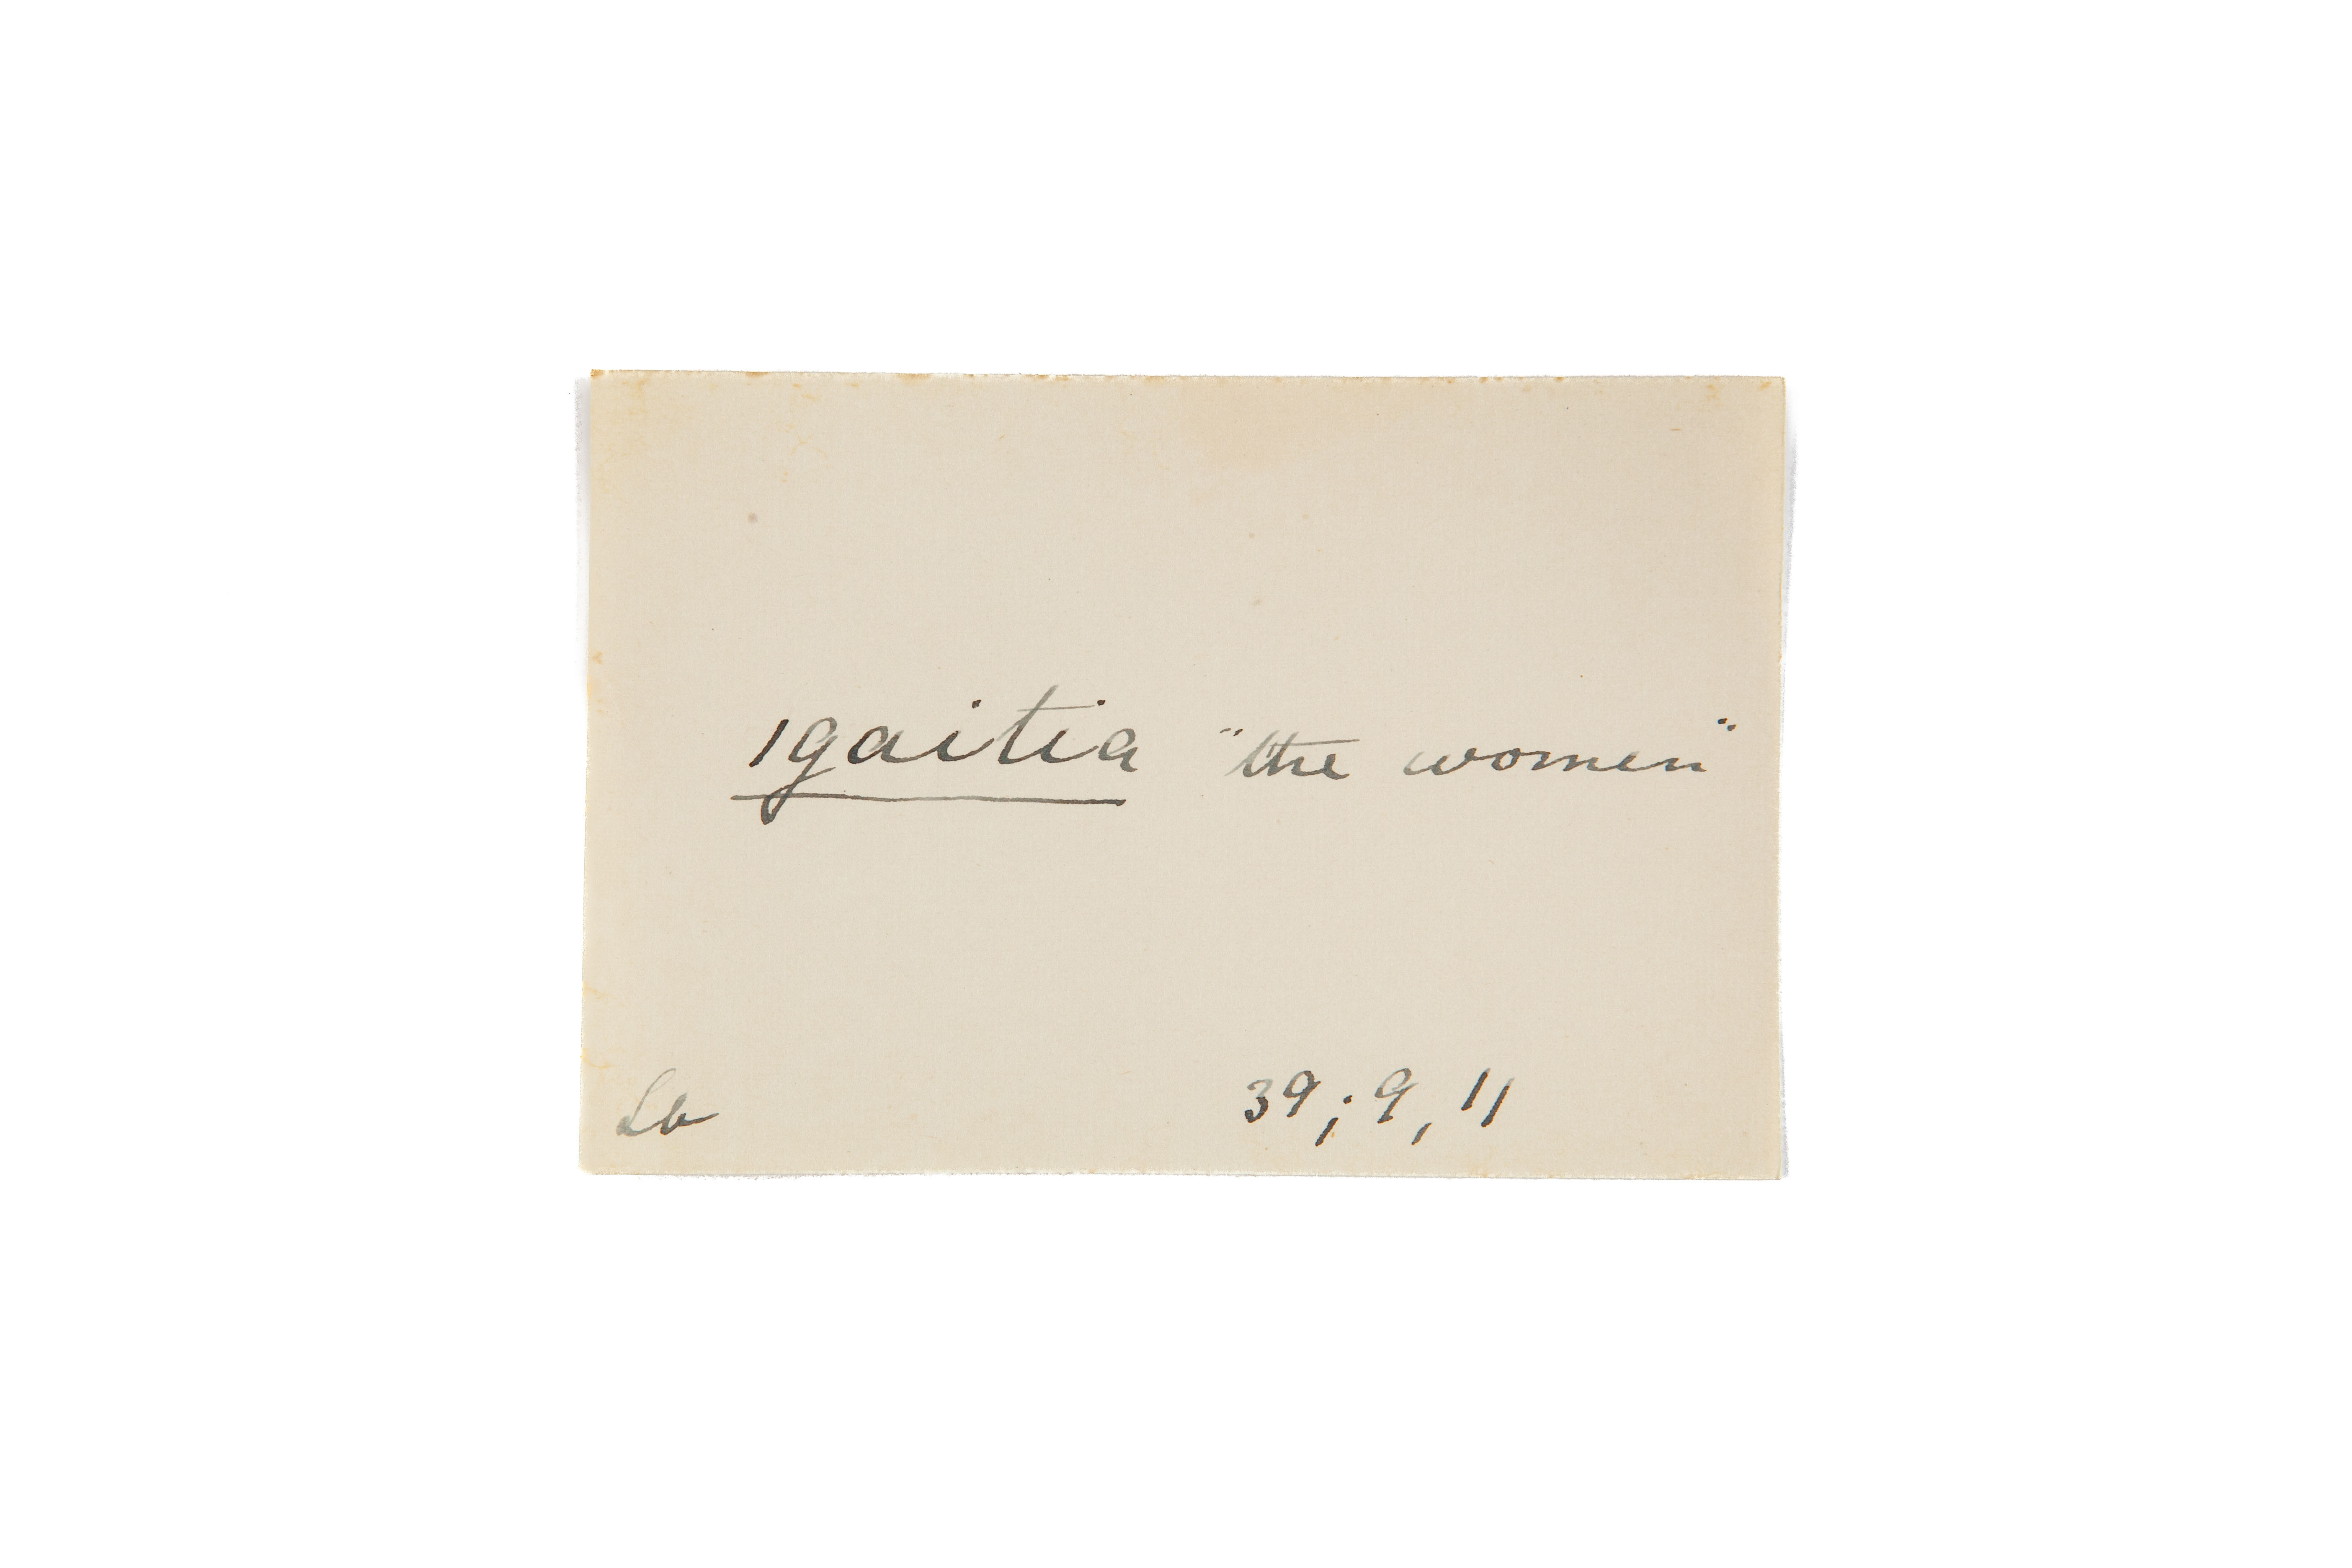 ǀgaitia "the women"
Lb 39; 9, 11